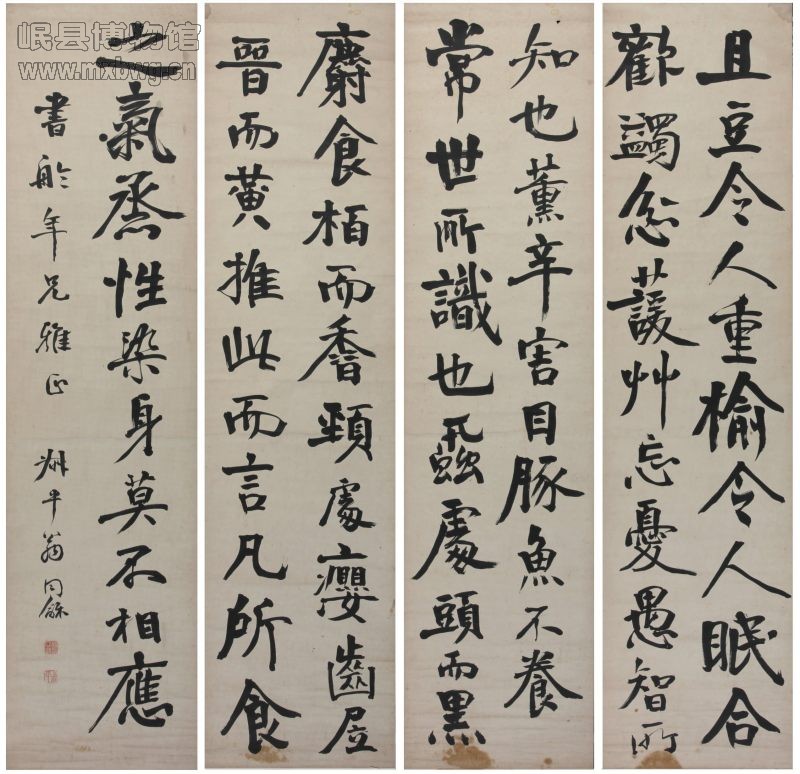 且豆令人重榆令人眠合
歡蠲忿萲艸忘憂愚智所
知也薰辛害目豚魚不養
常世所識也蝨處頭而黑
麝食柏而香頸處癭齒居
晉而黃推此而言凡所食
之氣烝性染身莫不相應
書舲年兄雅正
叔平翁同龢
岷县博物馆
www.mxbwg.cn